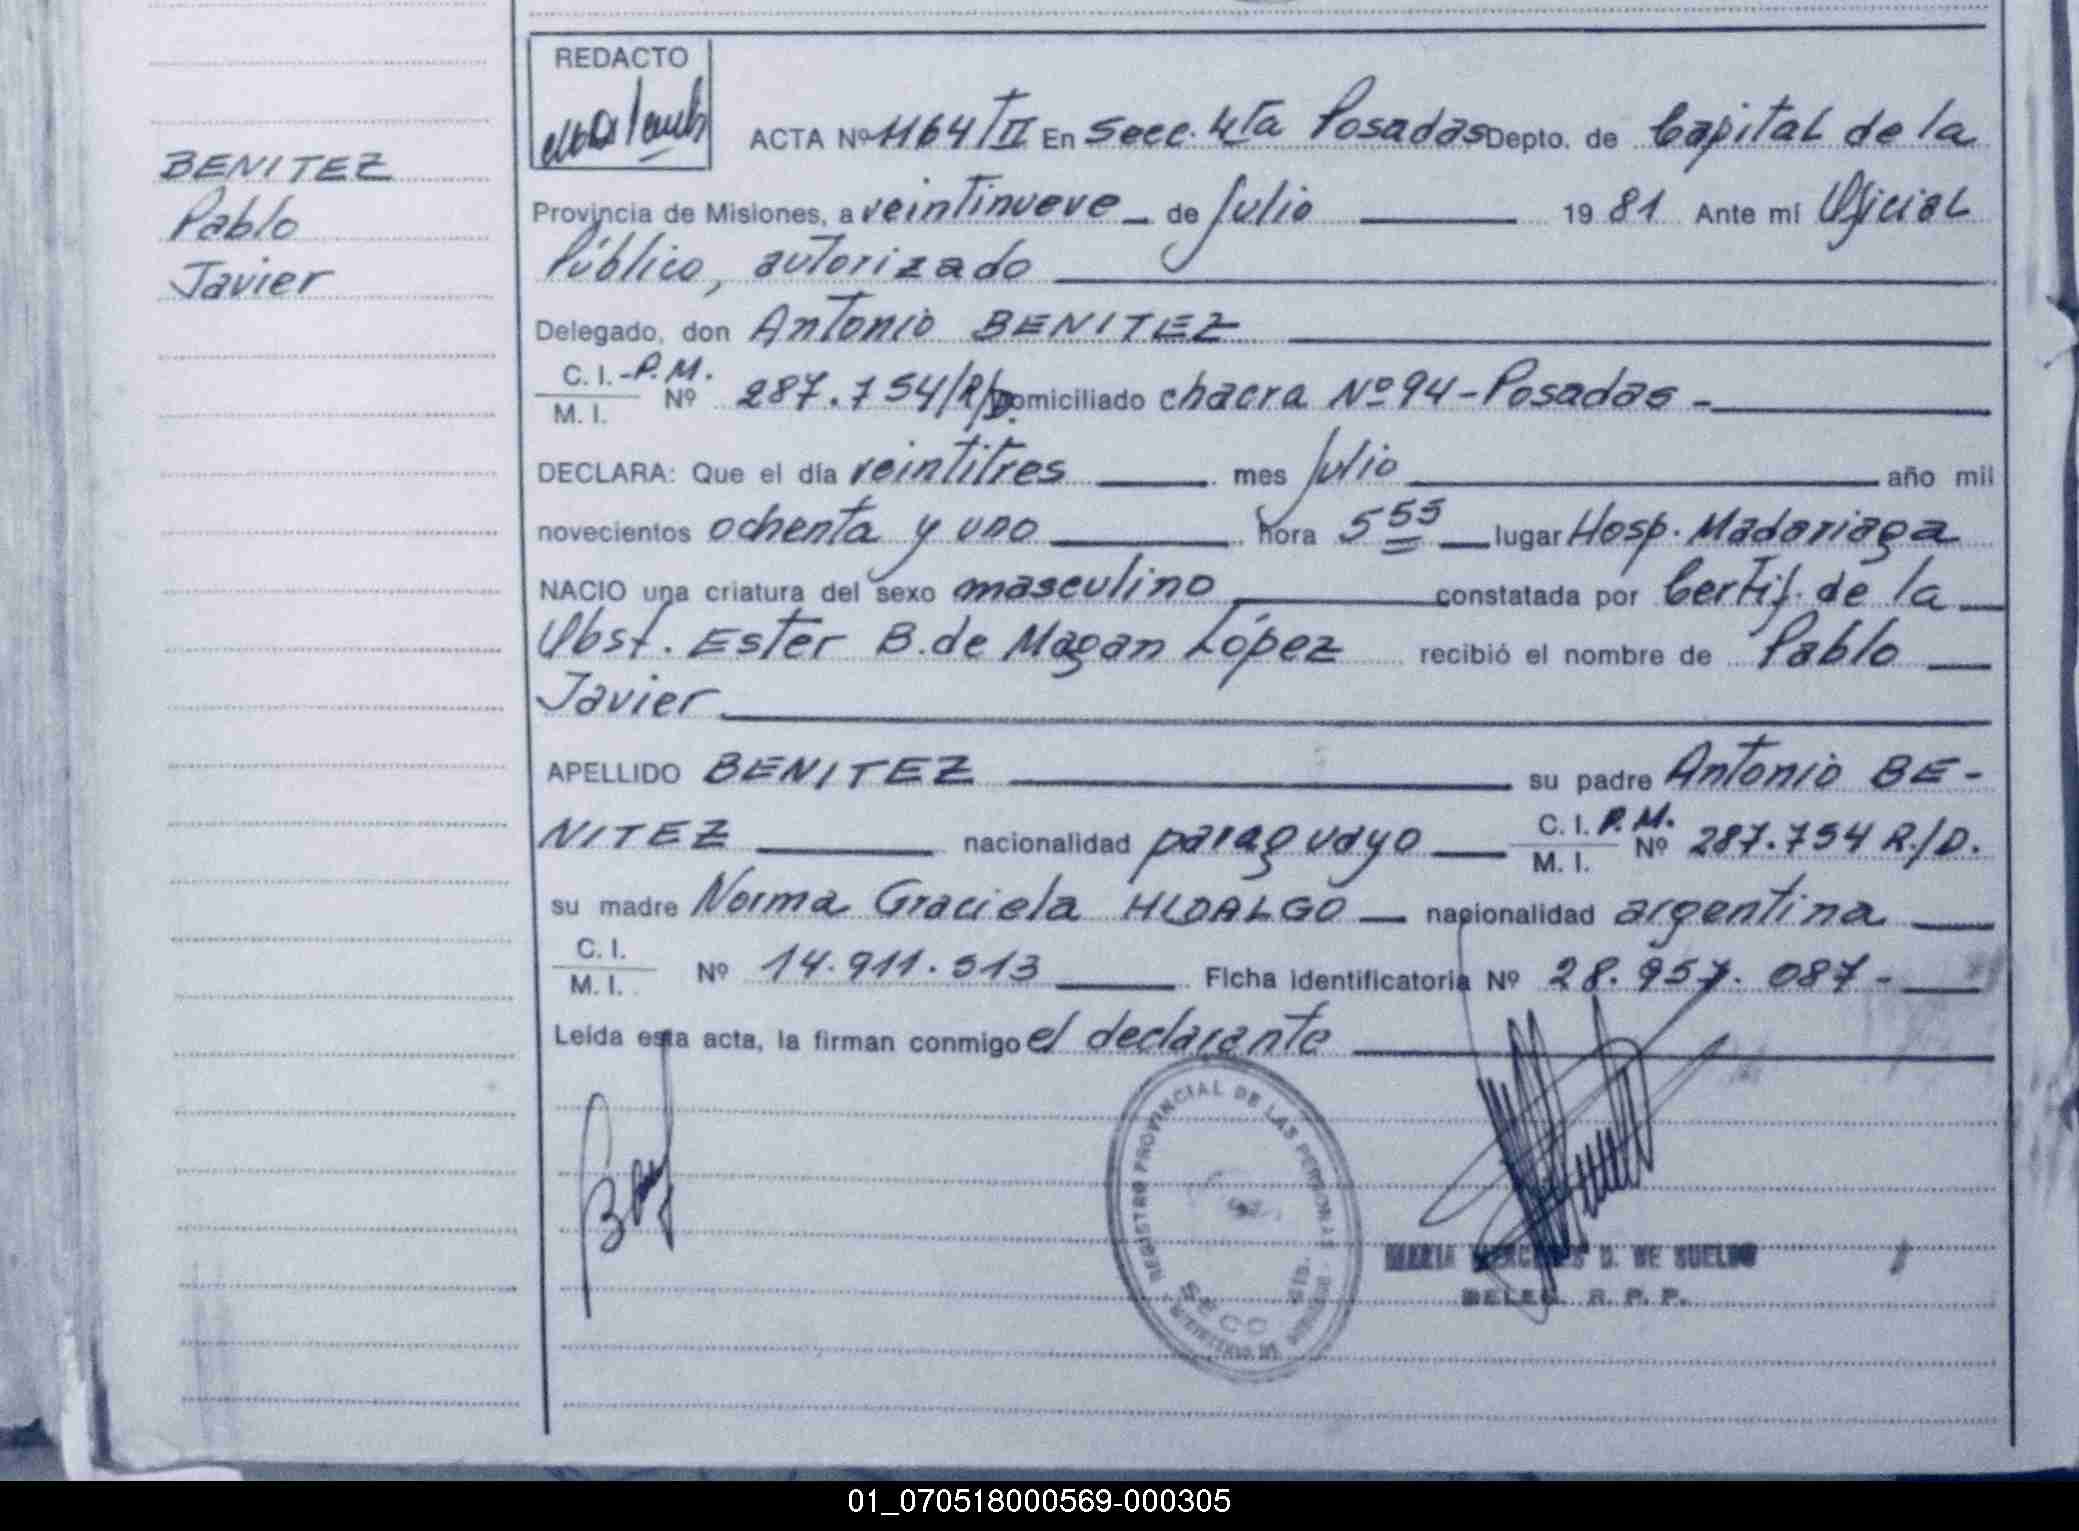 REDACTO
ACTA Nº 1164/II En Secc. 4ta Posadas Depto. de Capital de la
BENITEZ
Pablo
Javier
Provincia de Misiones, a veintinueve — de Julio — 1981 Ante mí Oficial
Público, autorizado
Delegado, don Antonio BENITEZ
C. I. - P.M.
M. I. Nº 287.754/R/D. domiciliado chacra Nº 94 - Posadas -
DECLARA: Que el día veintitres — mes Julio — año mil
novecientos ochenta y uno — hora 5 55 — lugar Hosp. Madariaga
NACIO una criatura del sexo masculino — constatada por Certif. de la —
Obst. Ester B. de Magan López recibió el nombre de Pablo —
Javier
APELLIDO BENITEZ — su padre Antonio BE-
NITEZ — nacionalidad paraguayo — C. I. P.M. M. I. Nº 287.754 R./D.
su madre Norma Graciela HIDALGO — nacionalidad argentina —
C. I.
M. I. Nº 14.911.513 — Ficha identificatoria Nº 28.957.087 - —
Leída esta acta, la firman conmigo el declarante
REGISTRO PROVINCIAL DE LAS PERSONAS
SECC 4ta.
MARIA MERCEDES D. DE SUELDO
DELEG. R. P. P.
01_070518000569-000305